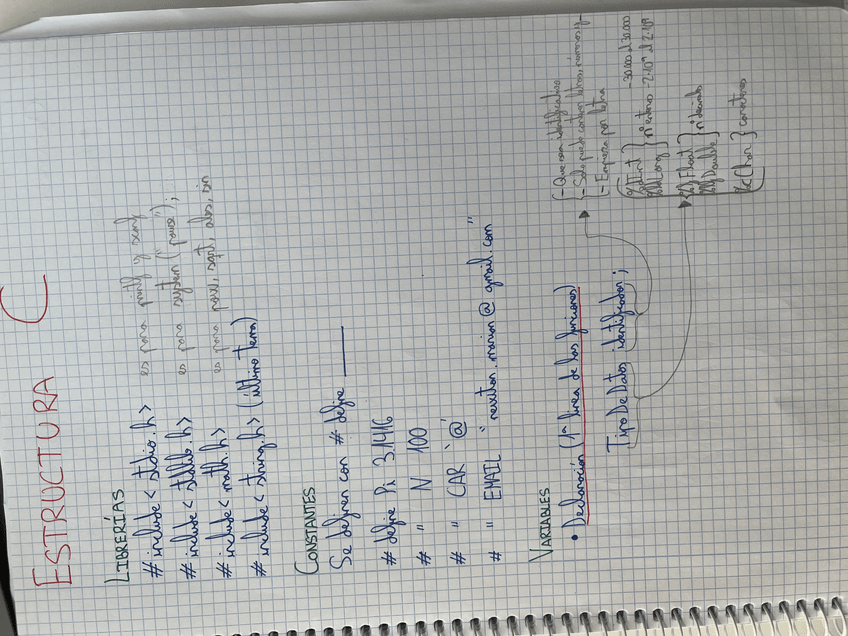 ESTRUCTURA C
LIBRERÍAS
# include < stdio.h > es para printf y scanf
# include < stdlib.h > es para system ("pause");
# include < math.h > es para pow, sqrt, abs, sin
# include < string.h > (último tema)
CONSTANTES
Se definen con # define ______
# define Pi 3.1416
# " N 100
# " CAR '@'
# " EMAIL "@gmail.com"
VARIABLES
• Declaración (1ª línea de las funciones)
TipoDeDatos identificador;
- Que sea identificativo
- Solo puede contener letras, números y _
- Empieza por letra
Int
Long } nº enteros -30.000 al 30.000
Float
Double } nº decimales
%c Char } caracteres